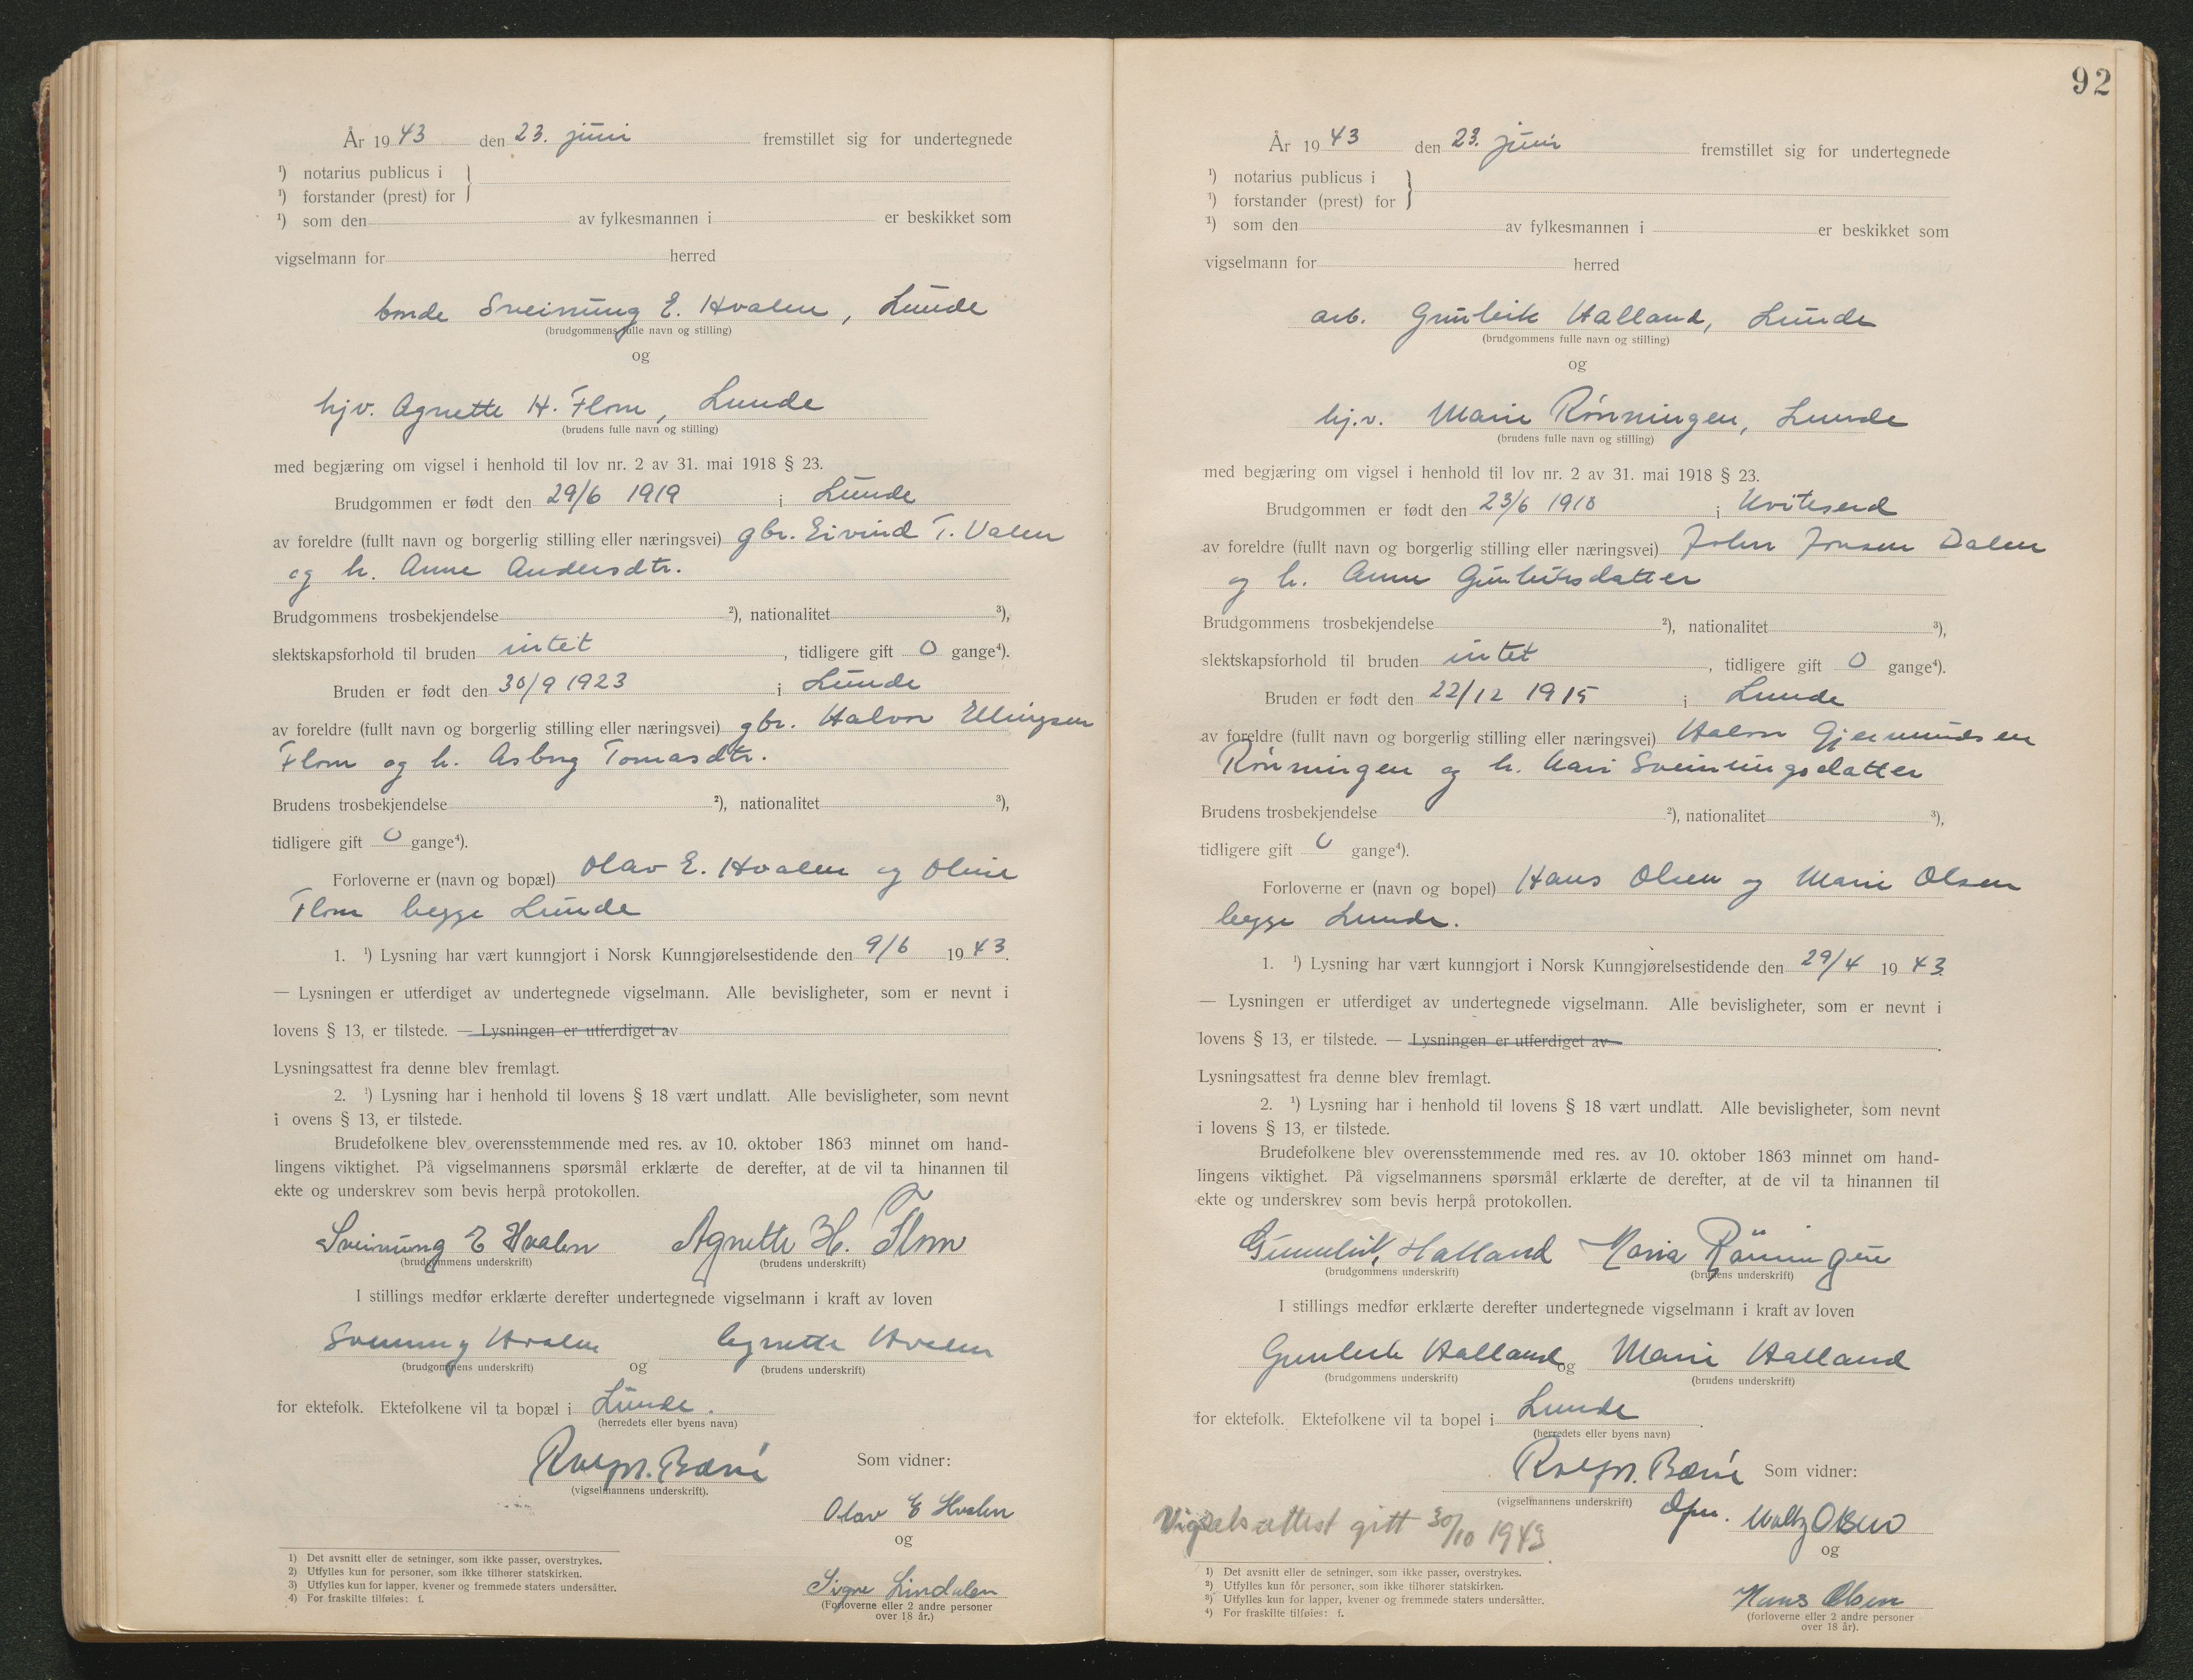 År 1943 den 23. juni fremstillet sig for undertegnede
¹) notarius publicus i
¹) forstander (prest) for }
¹) som den av fylkesmannen i er beskikket som
vigselmann for herred
bonde Sveinung E. Hvalen, Lunde
(brudgommens fulle navn og stilling)
og
hjv. Agnette H. Flom, Lunde
(brudens fulle navn og stilling)
med begjæring om vigsel i henhold til lov nr. 2 av 31. mai 1918 § 23.
Brudgommen er født den 29/6 1919 i Lunde
av foreldre (fullt navn og borgerlig stilling eller næringsvei) gbr. Eivind T. Valen
og h. Anne Andersdtr.
Brudgommens trosbekjendelse ²), nationalitet ³),
slektskapsforhold til bruden intet, tidligere gift 0 gange⁴).
Bruden er født den 30/9 1923 i Lunde
av foreldre (fullt navn og borgerlig stilling eller næringsvei) gbr. Halvor Ellingsen
Flom og h. Asborg Tomasdtr.
Brudens trosbekjendelse ²), nationalitet ³),
tidligere gift 0 gange⁴).
Forloverne er (navn og bopæl) Olav E. Hvalen og Oline
Flom begge Lunde
1. ¹) Lysning har vært kunngjort i Norsk Kunngjørelsestidende den 9/6 1943.
— Lysningen er utferdiget av undertegnede vigselmann. Alle bevisligheter, som er nevnt i
lovens § 13, er tilstede. — Lysningen er utferdiget av
Lysningsattest fra denne blev fremlagt.
2. ¹) Lysning har i henhold til lovens § 18 vært undlatt. Alle bevisligheter, som nevnt
i ovens § 13, er tilstede.
Brudefolkene blev overensstemmende med res. av 10. oktober 1863 minnet om hand-
lingens viktighet. På vigselmannens spørsmål erklærte de derefter, at de vil ta hinannen til
ekte og underskrev som bevis herpå protokollen.
Sveinung E Hvalen Agnette H. Flom
(brudgommens underskrift) (brudens underskrift)
I stillings medfør erklærte derefter undertegnede vigselmann i kraft av loven
Sveinung Hvalen og Agnette Hvalen
(brudgommens underskrift) (brudens underskrift)
for ektefolk. Ektefolkene vil ta bopæl i Lunde.
(herredets eller byens navn)
(vigselmannens underskrift).
Som vidner:
Olav E Hvalen
og
Signe Lindalen
(Forloverne eller 2 andre personer
over 18 år.)
1) Det avsnitt eller de setninger, som ikke passer, overstrykes.
2) Utfylles kun for personer, som ikke tilhører statskirken.
3) Utfylles kun for lapper, kvener og fremmede staters undersåtter.
4) For fraskilte tilføies: f.
92
År 1943 den 23. juni fremstillet sig for undertegnede
¹) notarius publicus i
¹) forstander (prest) for }
¹) som den av fylkesmannen i er beskikket som
vigselmann for herred
arb. Gunleik Halland, Lunde
(brudgommens fulle navn og stilling)
og
hj.v. Marie Rønningen, Lunde
(brudens fulle navn og stilling)
med begjæring om vigsel i henhold til lov nr. 2 av 31. mai 1918 § 23.
Brudgommen er født den 23/6 1918 i Kviteseid
av foreldre (fullt navn og borgerlig stilling eller næringsvei) John Jonsen Dalen
og h. Anne Gunleiksdatter
Brudgommens trosbekjendelse ²), nationalitet ³),
slektskapsforhold til bruden intet, tidligere gift 0 gange⁴).
Bruden er født den 22/12 1915 i Lunde
av foreldre (fullt navn og borgerlig stilling eller næringsvei) Halvor Gjermundsen
Rønningen og h. Kari Sveinungsdatter
Brudens trosbekjendelse ²), nationalitet ³),
tidligere gift 0 gange⁴).
Forloverne er (navn og bopel) Hans Olsen og Marie Olsen
begge Lunde.
1. ¹) Lysning har vært kunngjort i Norsk Kunngjørelsestidende den 29/4 1943
— Lysningen er utferdiget av undertegnede vigselmann. Alle bevisligheter, som er nevnt i
lovens § 13, er tilstede. — Lysningen er utferdiget av
Lysningsattest fra denne blev fremlagt.
2. ¹) Lysning har i henhold til lovens § 18 vært undlatt. Alle bevisligheter, som nevnt
i lovens § 13, er tilstede.
Brudefolkene blev overensstemmende med res. av 10. oktober 1863 minnet om hand-
lingens viktighet. På vigselmannens spørsmål erklærte de derefter, at de vil ta hinannen til
ekte og underskrev som bevis herpå protokollen.
Gunnleik Halland Maria Rönningen
(brudgommens underskrift) (brudens underskrift)
I stillings medfør erklærte derefter undertegnede vigselmann i kraft av loven
Gunleik Halland og Marie Halland
(brudgommens underskrift) (brudens underskrift)
for ektefolk. Ektefolkene vil ta bopel i Lunde.
(herredets eller byens navn)
(vigselmannens underskrift)
Som vidner:
Olsen
og
Hans Olsen
(forloverne eller 2 andre personer
over 18 år).
Vigselsattest gitt 30/10 1943
¹) Det avsnitt eller de setninger, som ikke passer, overstrykes.
²) Utfylles kun for personer, som ikke tilhører statskirken.
³) Utfylles kun for lapper, kvener og fremmede staters undersåtter.
⁴) For fraskilte tilføies: f.